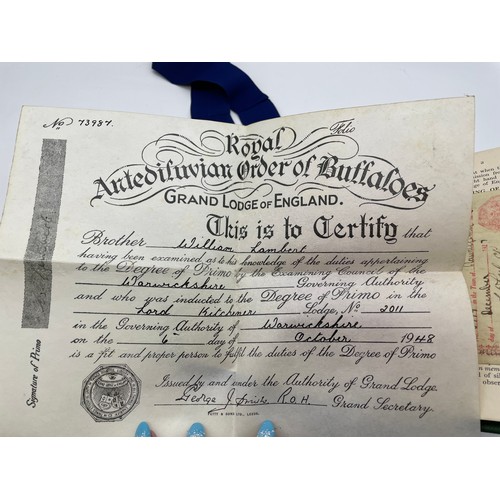 No. 73987.
Folio
Royal
Antediluvian Order of Buffaloes
GRAND LODGE OF ENGLAND.
This is to Certify that
Brother William Lambert
having been examined as to his knowledge of the duties appertaining
to the Degree of Primo by the Examining Council of the
Warwickshire Governing Authority
and who was inducted to the Degree of Primo in the
Lord Kitchener Lodge, No 2011
in the Governing Authority of Warwickshire
on the 6 day of October 1948
is a fit and proper person to fulfil the duties of the Degree of Primo
Issued by and under the Authority of Grand Lodge.
George J R.O.H. Grand Secretary.
TUTT & SONS LTD., LEEDS.
Signature of Primo
December